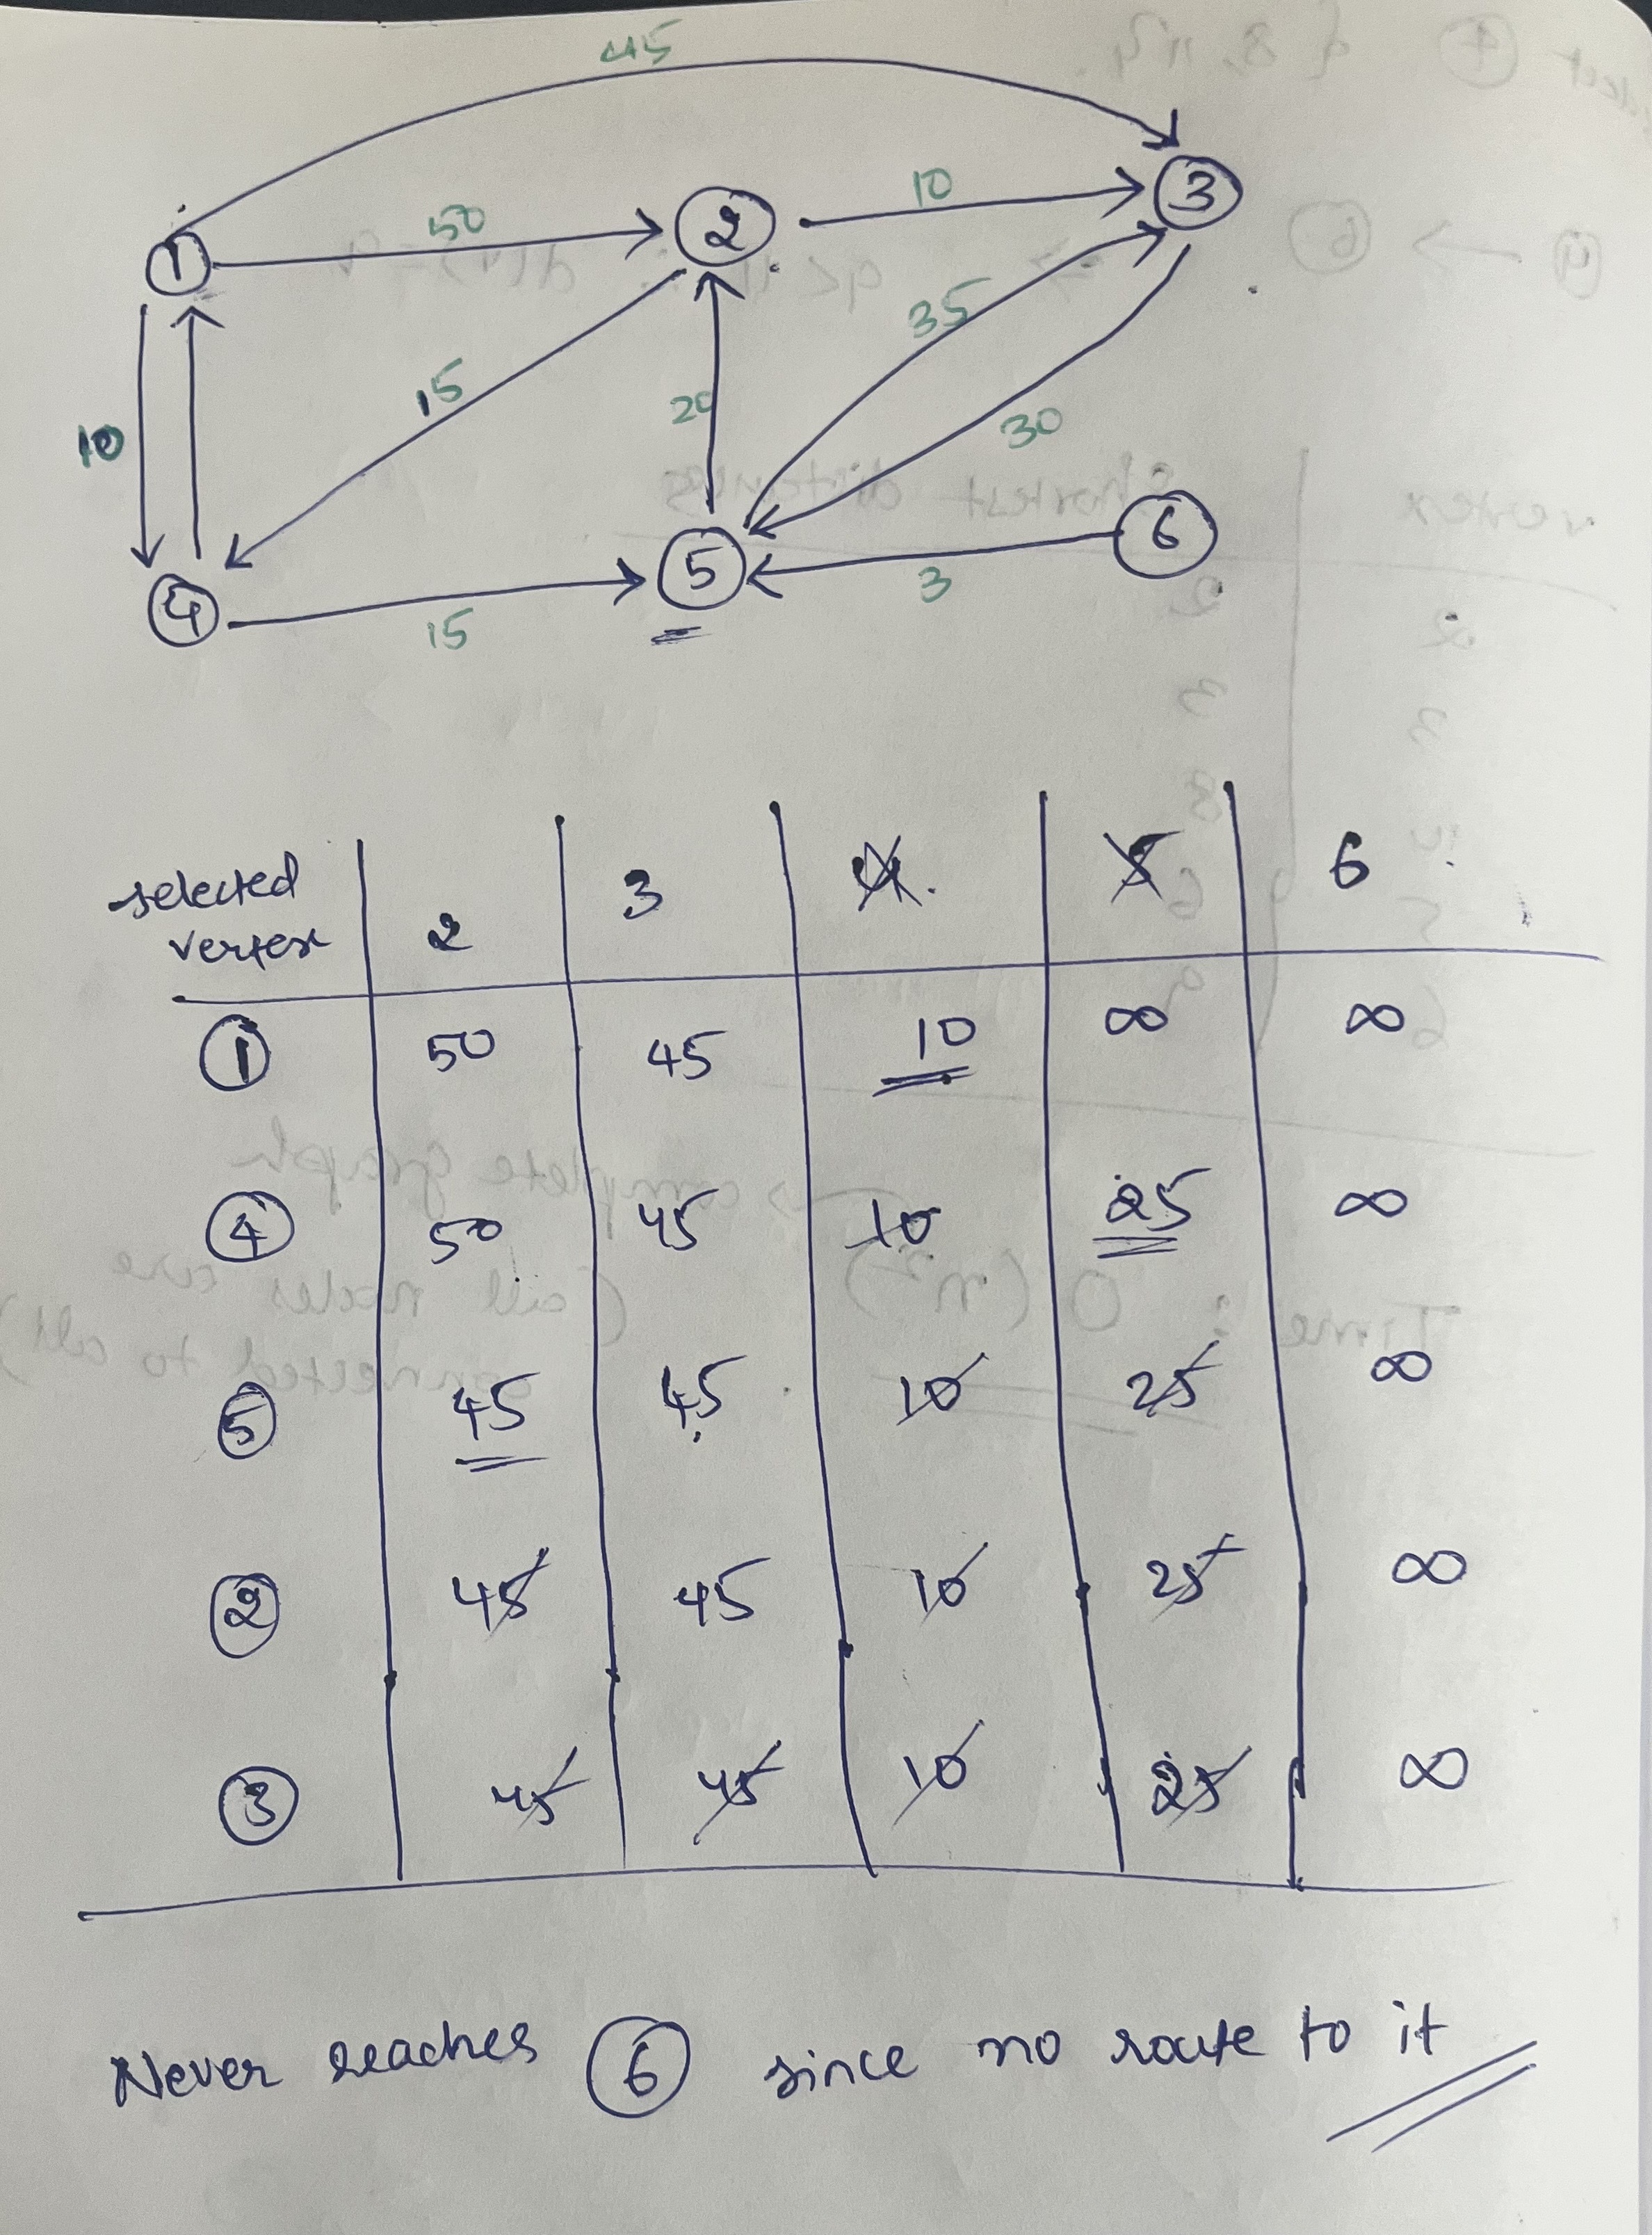 45
1 50 2 10 3
10 15 20 35 30
4 15 5 3 6
selected vertex 2 3 4. 5 6
1 50 45 10 ∞ ∞
4 50 45 10 25 ∞
5 45 45 10 25 ∞
2 45 45 10 25 ∞
3 45 45 10 25 ∞
Never reaches 6 since no route to it